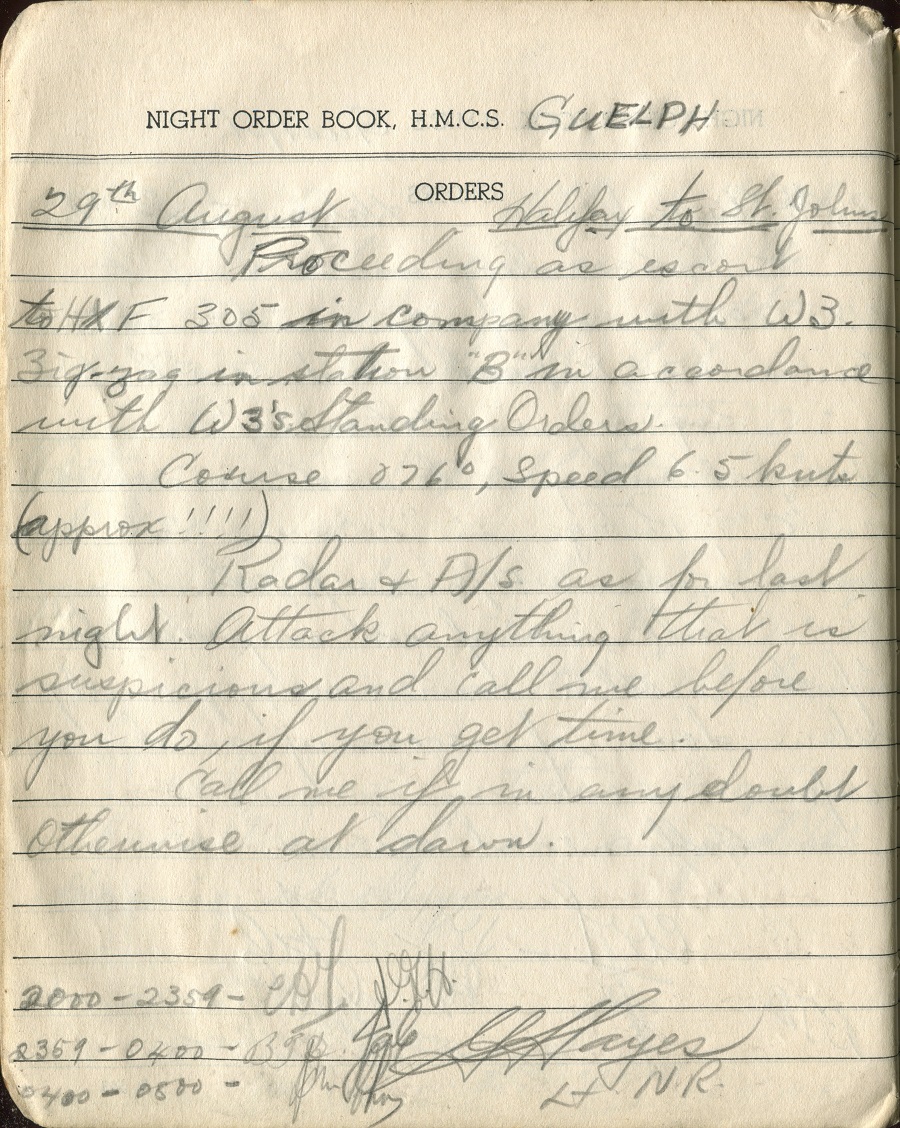 NIGHT ORDER BOOK, H.M.C.S. GUELPH
ORDERS
29th August Halifax to St. Johns
Proceeding as escort
to HXF 305 in company with W3.
Zig-zag in station "B" in accordance
with W3's Standing Orders.
Course 076°, Speed 6.5 knts
(approx !!!!)
Radar & A/s as for last
night. Attack anything that is
suspicious and call me before
you do, if you get time.
Call me if in any doubt
Otherwise at dawn.
2000 - 2359 - J.G.H.
2359 - 0400 - GHHayes
0400 - 0800 - Lt. N.R.